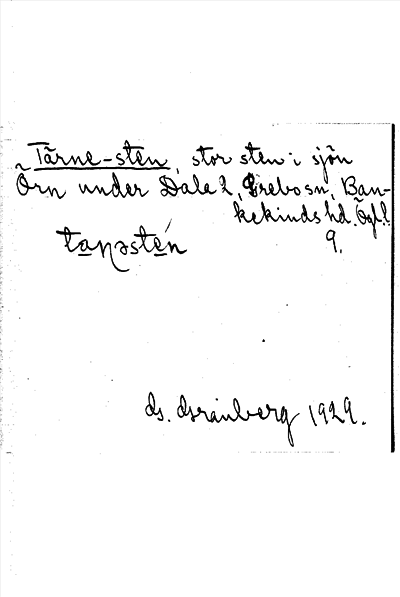 Tärne-sten, stor sten i sjön
Örn under Dale 2, Grebo sn, Ban-
kekinds hd. Ögl.
9.
tanəstén
G. Granberg 1929.